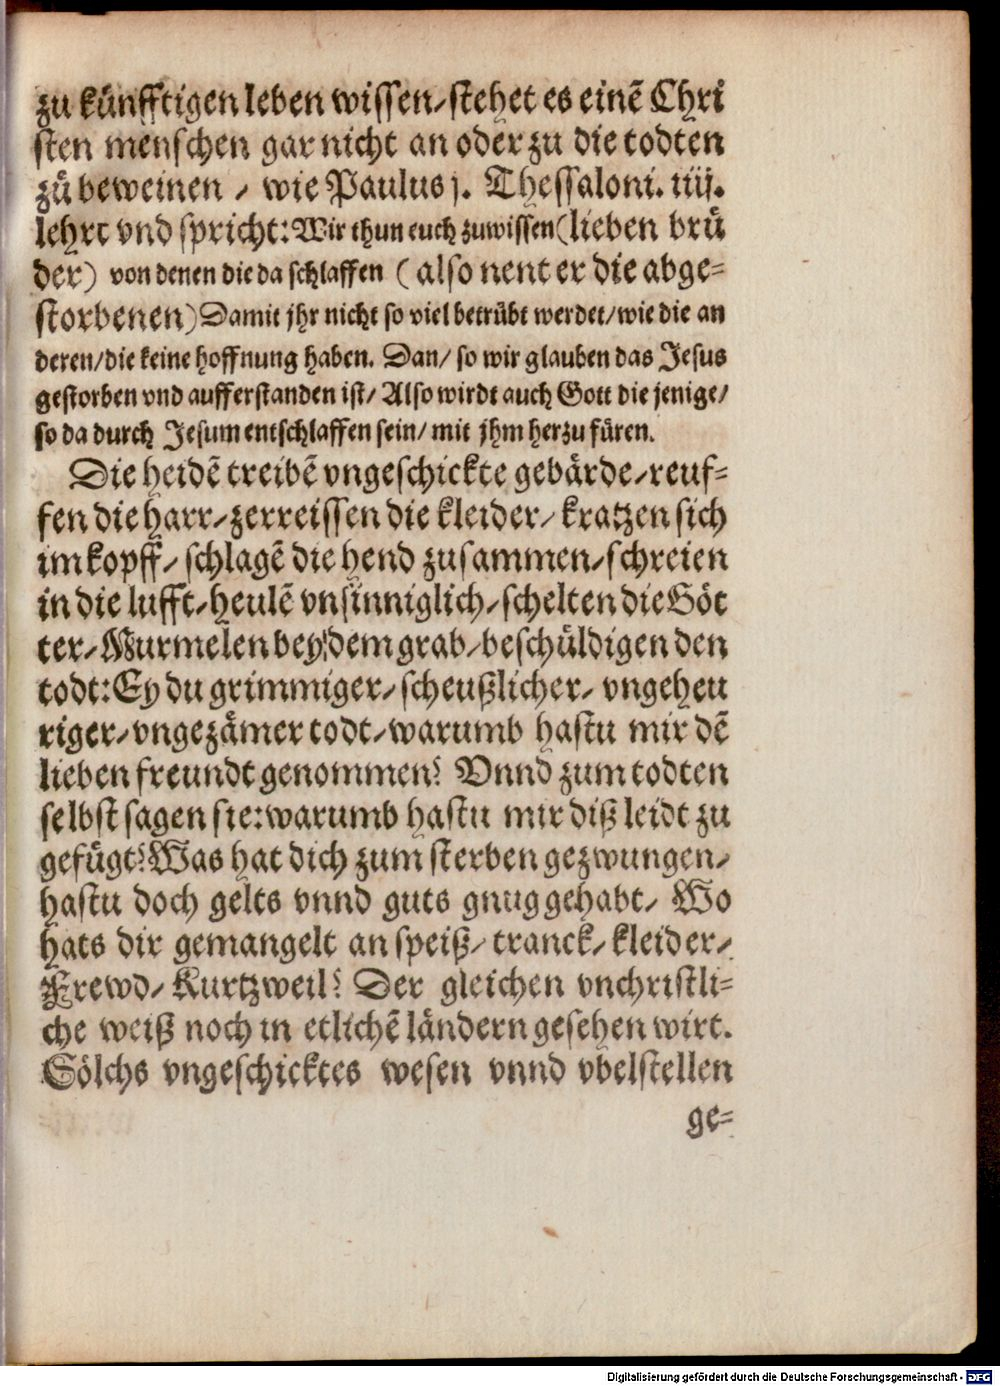 zu künfftigen leben wissen/ stehet es einē Chri
sten menschen gar nicht an oder zu die todten
zů beweinen / wie Paulus j. Thessaloni. iiij.
lehrt vnd spricht: Wir thun euch zuwissen (lieben brü
der) von denen die da schlaffen (also nent er die abge=
storbenen) Damit jhr nicht so viel betrübt werdet/ wie die an
deren/ die keine hoffnung haben. Dan/ so wir glauben das Jesus
gestorben vnd aufferstanden ist/ Also wirdt auch Gott die jenige/
so da durch Jesum entschlaffen sein/ mit jhm herzu füren.
Die heidē treibē vngeschickte gebärde/ reuf=
fen die harr/ zerreissen die kleider/ kratzen sich
im kopff/ schlagē die hend zusammen/ schreien
in die lufft/ heulē vnsinniglich/ schelten die Göt
ter/ Murmelen bey dem grab/ beschüldigen den
todt: Ey du grimmiger/ scheußlicher/ vngeheu
riger/ vngezämer todt/ warumb hastu mir dē
lieben freundt genommen? Vnnd zum todten
selbst sagen sie: warumb hastu mir diß leidt zu
gefügt? Was hat dich zum sterben gezwungen/
hastu doch gelts vnnd guts gnug gehabt/ Wo
hats dir gemangelt an speiß/ tranck/ kleider/
Frewd/ Kurtzweil? Der gleichen vnchristli=
che weiß noch in etlichē ländern gesehen wirt.
Sölchs vngeschicktes wesen vnnd vbelstellen
ge=
Digitalisierung gefördert durch die Deutsche Forschungsgemeinschaft - DFG